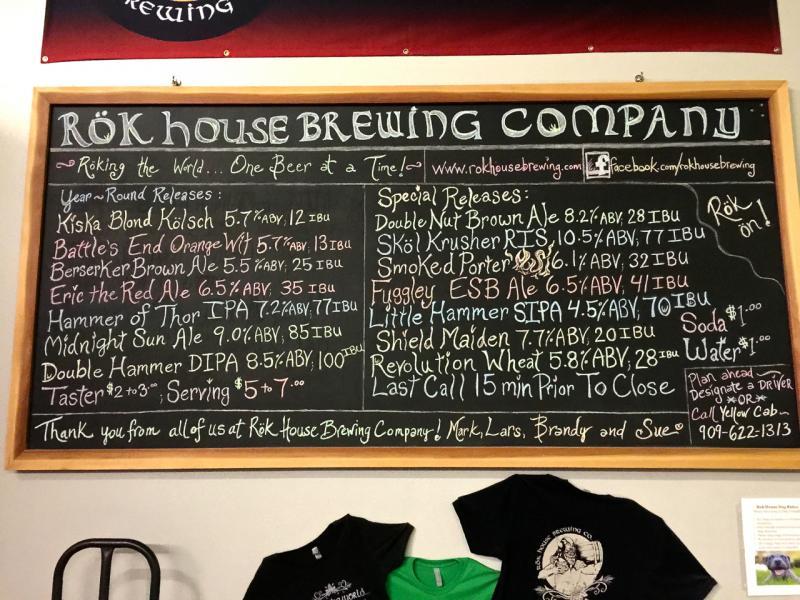 REWING
RÖK HOUSE BREWING COMPANY
Röking the World... One Beer at a Time!
www.rokhousebrewing.com
f facebook.com/rokhousebrewing
Year~Round Releases:
Kiska Blond Kölsch 5.7% ABV, 12 IBU
Battle's End Orange Wit 5.7% ABV, 13 IBU
Berserker Brown Ale 5.5% ABV, 25 IBU
Eric the Red Ale 6.5% ABV, 35 IBU
Hammer of Thor IPA 7.2% ABV, 77 IBU
Midnight Sun Ale 9.0% ABV, 85 IBU
Double Hammer DIPA 8.5% ABV, 100 IBU
Taster $2 to 3.00; Serving $5 to 7.00
Special Releases:
Double Nut Brown Ale 8.2% ABV, 28 IBU
Sköl Krusher RIS, 10.5% ABV, 77 IBU
Smoked Porter 6.1% ABV, 32 IBU
Fuggley ESB Ale 6.5% ABV, 41 IBU
Little Hammer SIPA 4.5% ABV, 70 IBU
Shield Maiden 7.7% ABV, 20 IBU
Revolution Wheat 5.8% ABV, 28 IBU
Last Call 15 min Prior To Close
Rök
ön!
Soda $1.00
Water $1.00
Plan ahead
Designate a DRIVER
*OR*
Call Yellow Cab
909-622-1313
Thank you from all of us at Rök House Brewing Company! Mark, Lars, Brandy and Sue
RÖK HOUSE BREWING CO.
Rök House Dog Rules